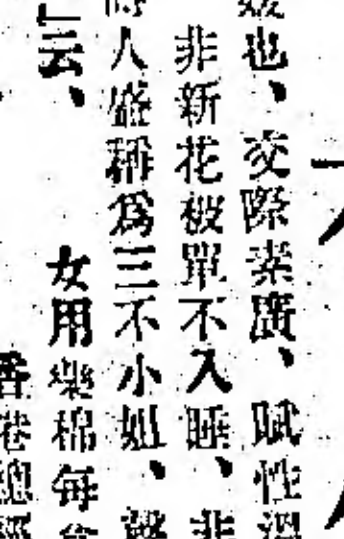 也、交際素廣、賦性溫
非新花被單不入睡、非
時人盛稱爲三不小姐、聲
」云、
女用樂棉每
香港總經